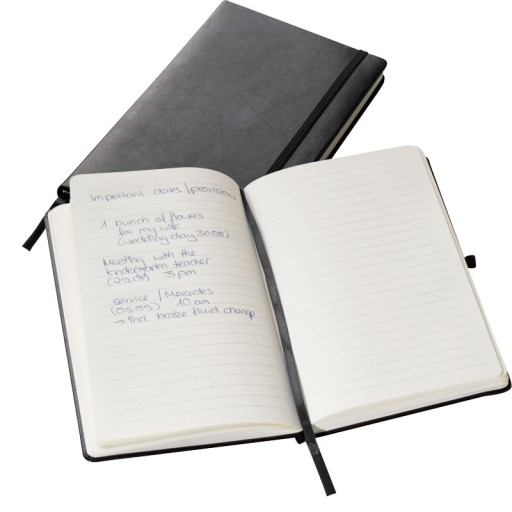 Important dates / provisions
1 bunch of flowers
for my wife
(wedding day 30.08)
Meeting with the
kindergarten teacher
(29.09) 3 pm
service / Mercedes
(05.09) 10 am
→ incl. brake fluid change